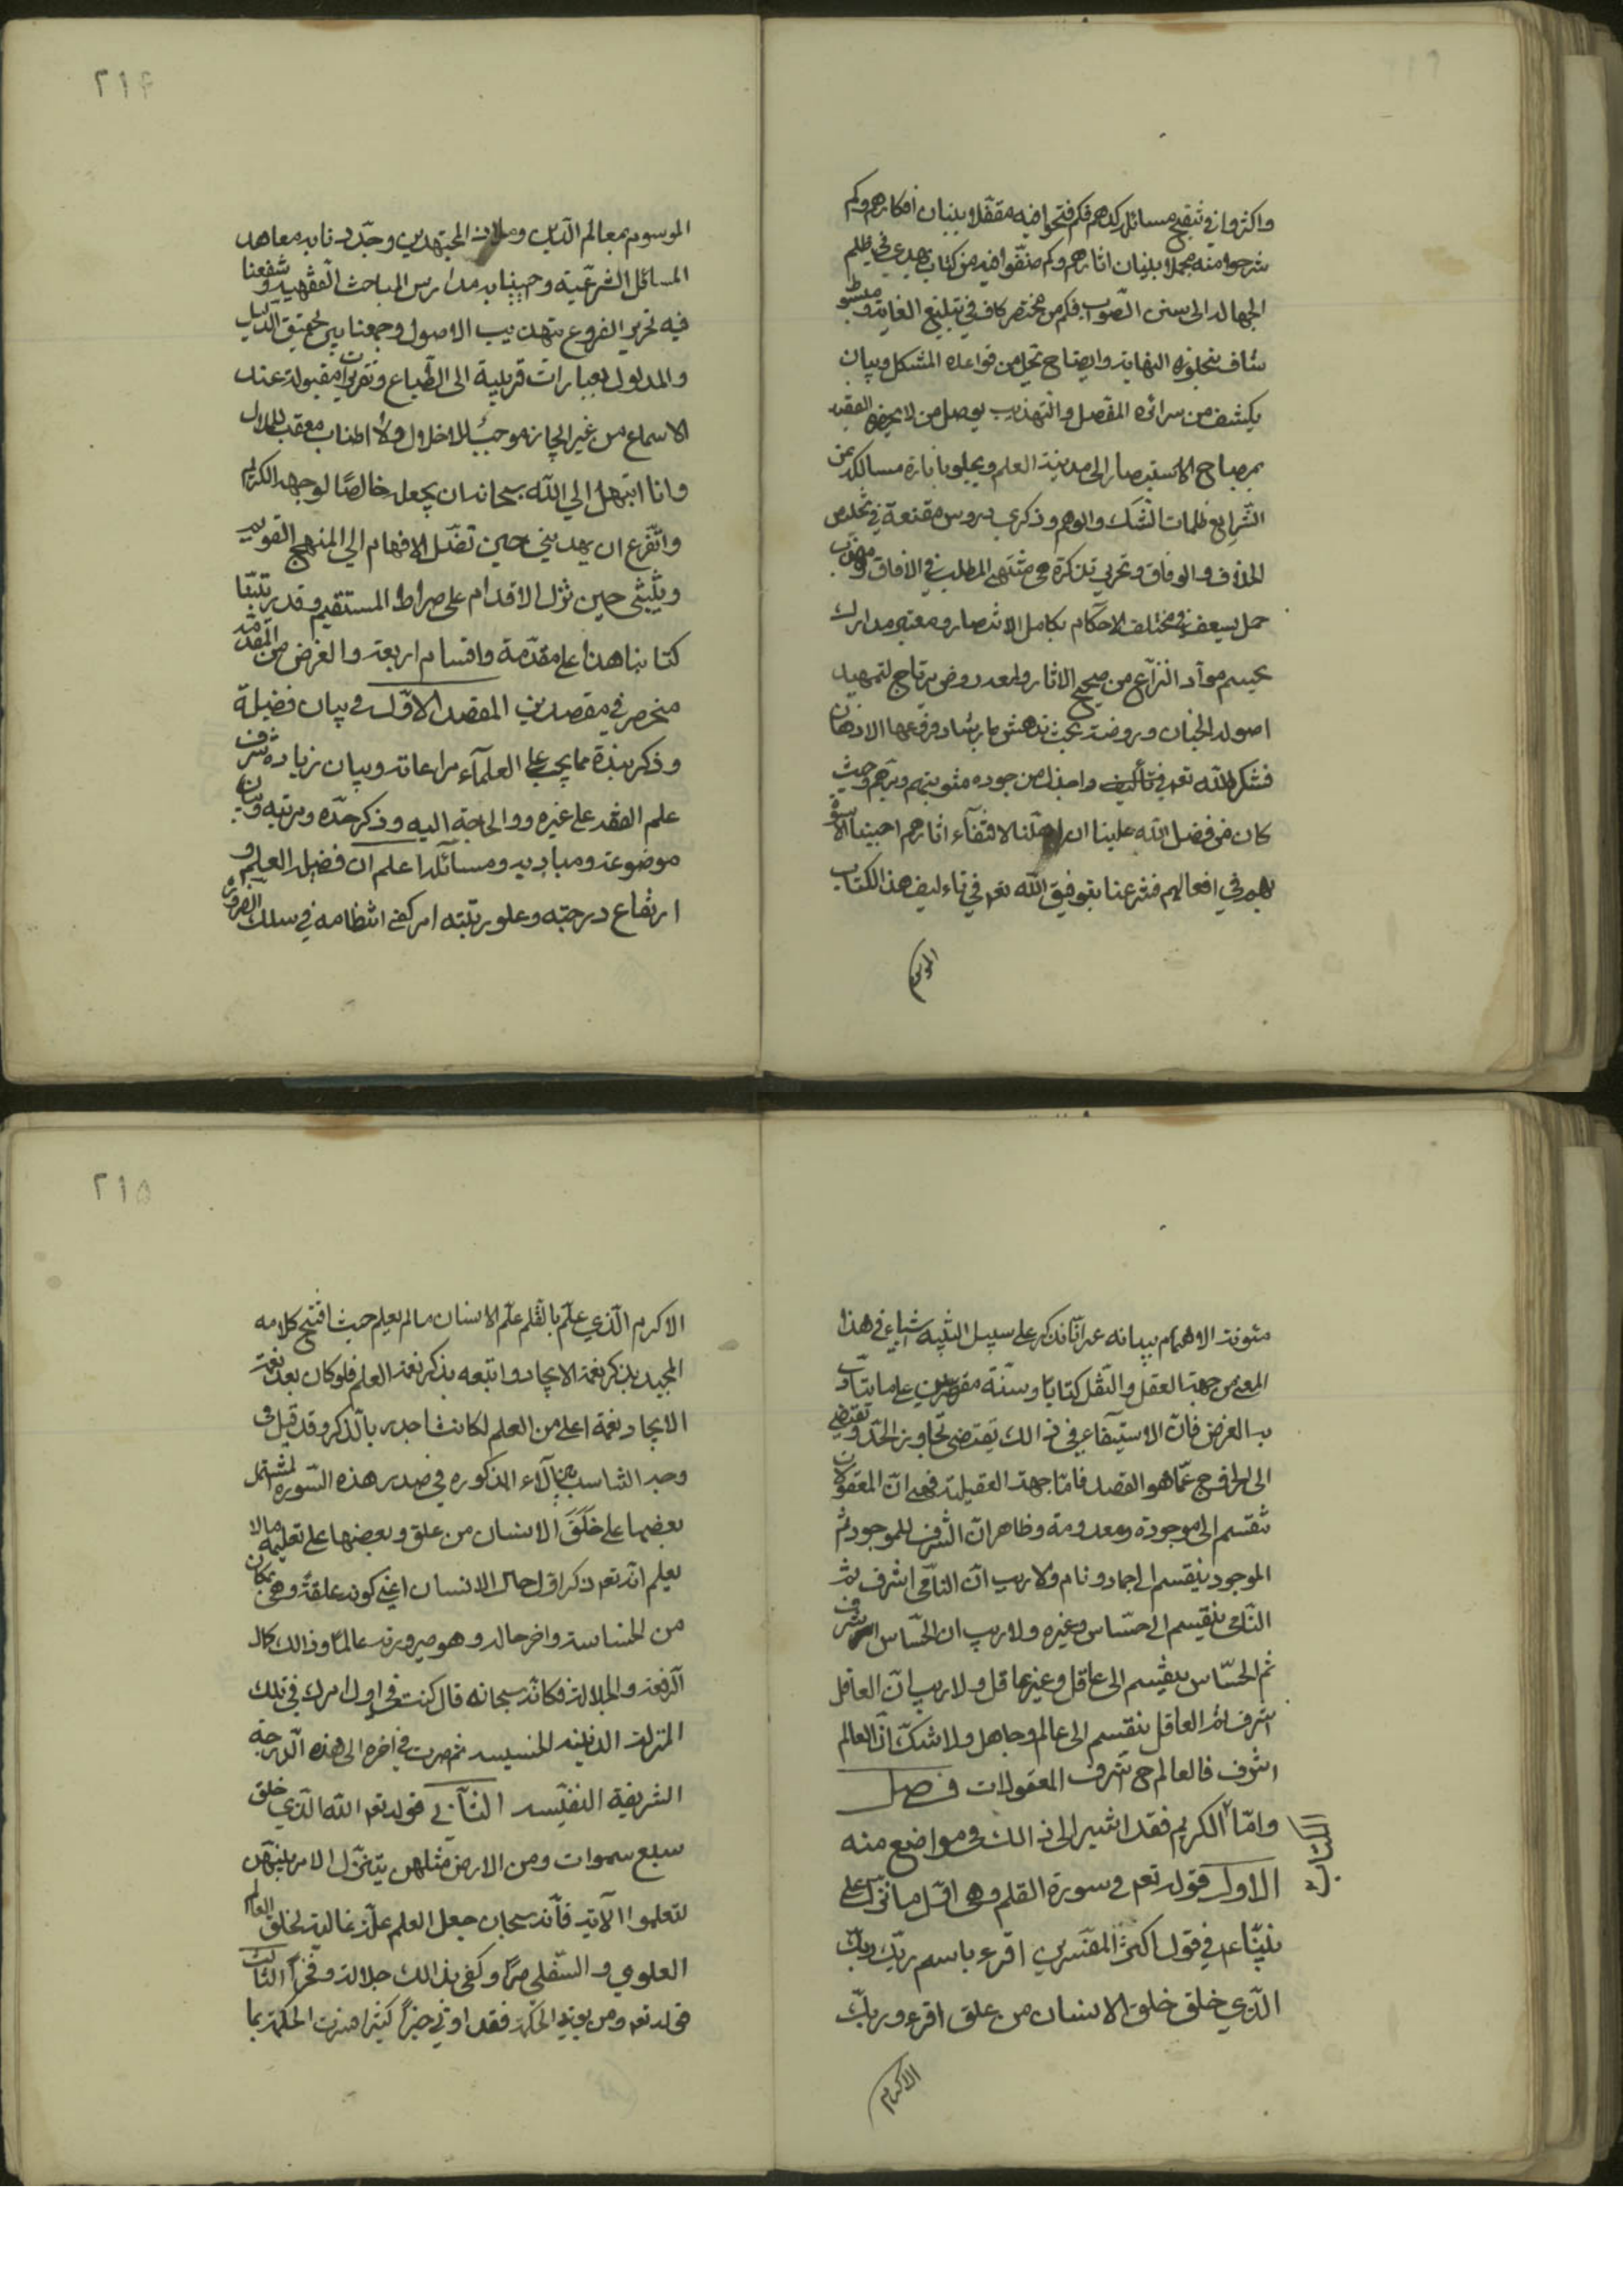 واكثروا في تنقيح مسائله كدهم فكم فتحوا فيه مقفلا ببنان افكارهم وكم
شرحوا منه مجملا ببنيان اثارهم وكم صنّفوا فيه من كتاب يهدي في ظلم
الجهالة الى سنن الصّواب فكم من مختصر كاف في تبليغ الغاية ومبسوط
شاف بتجاوزه النهاية وايضاح تحل من قواعده المشكل وبيان
يكشف من سرائره المفصل والتهذيب يوصل من لا يحضره الفقيه
بمصباح الاستبصار الى مدينة العلم ويجلو بانارة مسالكه عن
الشّرايع ظلمات الشك والوهم وذكرى دروس مقنعة في تلخيص
الخلاف والوفاق وتحرير تذكرة هي منتهى المطلب في الافاق ومهذب
جمل يسعف في مختلف الاحكام بكامل الانتصار ومعتبر مدارك
يحسم موآد النزآع من صحيح الاثار ولمعه روض يرتاح لتمهيد
اصوله الجنان وروضة بحث تدهش بارشاد فروعها الاذهان
فشكر الله تعه في تأليف واجزل من جوده مثوبتهم وبرّهم وحيث
كان من فضل الله علينا ان اهلّنا لاقتفآء اثارهم احببنا الاسوة
بهم في افعالهم فشرعنا بتوفيق الله تعه في تاءليف هذا الكتاب
الموسوم
۲۱۴
الموسوم بمعالم الدّين وملاذ المجتهدين وجدّدنا به معاهد
المسائل الشرعّية واحيينا به مدارس المباحث الفقهيه وشفعنا
فيه تحرير الفروع بتهذيب الاصول وجمعنا بين تحقيق الدّليل
والمدلول بعبارات قريبة الى الطّباع وتقريرات مقبولة عند
الاسماع من غير ايجاز موجب للاخلال ولا اطناب معقب للملال
وانا ابتهل الي الله سبحانه ان يجعله خالصًا لوجهه الكريم
واتضّرع ان يهديني حين تضّل الافهام الي المنهج القويم
ويثّبتني حين تزل الاقدام على صراط المستقيم وقد رتّبنا
كتابنا هذا على مقدّمة واقسام اربعة والغرض من المقدّمة
منحصر في مقصدين المقصد الاوّل في بيان فضيلة
وذكر نبذة مما يجب على العلمآء مراعاته وبيان زيادة شرف
علم الفقه على غيره ووالحاجة اليه وذكر حدّه ومرتبته وبيان
موضوعه ومباديه ومسائله اعلم ان فضيلة العلم و
ارتفاع درجته وعلو رتبته امر كفى انتظامه في سلك الضرورة
مئونة الاهتمام ببيانه غير انّا نذكر على سبيل التنبيه شيا في هذا
المعنى من جهة العقل والنّقل كتابًا وسنّة مقتصرين على ما يتادّى
به الغرض فانّ الاستيفآء في ذالك يقتضى تجاوز الحدّ ويقتضي
الى الخروج عمّا هو القصد فامّا جهة العقلية فهى انّ المعقولات
تنقسم الى موجودة ومعدومة وظاهر انّ الشرف للموجود ثم
الموجود ينقسم الى جماد ونام ولا ريب انّ النّامى اشرف ثم
النّامى ينقسم الى حسّاس وغيره ولا ريب ان الحّساس اشرف
ثم الحسّاس ينقّسم الى عاقل وغير عاقل ولا ريب انّ العاقل
اشرف ثم العاقل ينقسم الى عالم وجاهل ولا شكّ انّ العالم
اشرف فالعالم ح اشرف المعقولات فصل
وامّا الكتاب الكريم فقد اشير الى ذالك في مواضع منه
الاول قوله تعه في سورة القلم وهى اوّل ما نزل على
نبيّنا عم في قول اكثر المفسّرين اقرء باسم ربّك ربك
الّذي خلق خلق الانسان من علق اقرء وربّك
الاكرم
۲۱۵
الاكرم الّذي علّم بالقلم علّم الانسان مالم يعلم حيث افتتح كلامه
المجيد بذكر نعمة الايجاد واتبعه بذكر نعمة العلم فلو كان بعد نعمة
الايجاد نعمة اعلى من العلم لكانت اجدر بالّذكر وقد قيل في
وجه التناسب بين الآء المذكوره في صدر هذه السّوره المشتمل
بعضها على خَلَقَ الانسان من علق وبعضها على تعليمه مالا
يعلم انّه تعه ذكر اوّل حال الانسان اعنى كونه علقةً وهى بمكان
من الخساسة واخر حاله وهو صيرورته عالمًا وذالك كمال
الرّفعة والجلالة فكانّه سبحانه قال كنت في اول امرك في تلك
المنزلة الدنيّيه الخسيسه ثم صرت في اخره الى هذه الّدرجة
الشريفة النفيّسه الثّاني قوله تعه الله الّذي خلق
سبع سموات ومن الارض مثلهن يتنزّل الامر بينهّن
لتعلموا الآية فأنّه سبحانه جعل العلم علّة غالية لخلق العالم
العلوي والسّفلي طرًّا وكفى بذالك جلالة وفخراً الثالث
قوله تعه ومن يؤت الحكمة فقد اوتي خيراً كثيرا فسّرت الحكمة بما